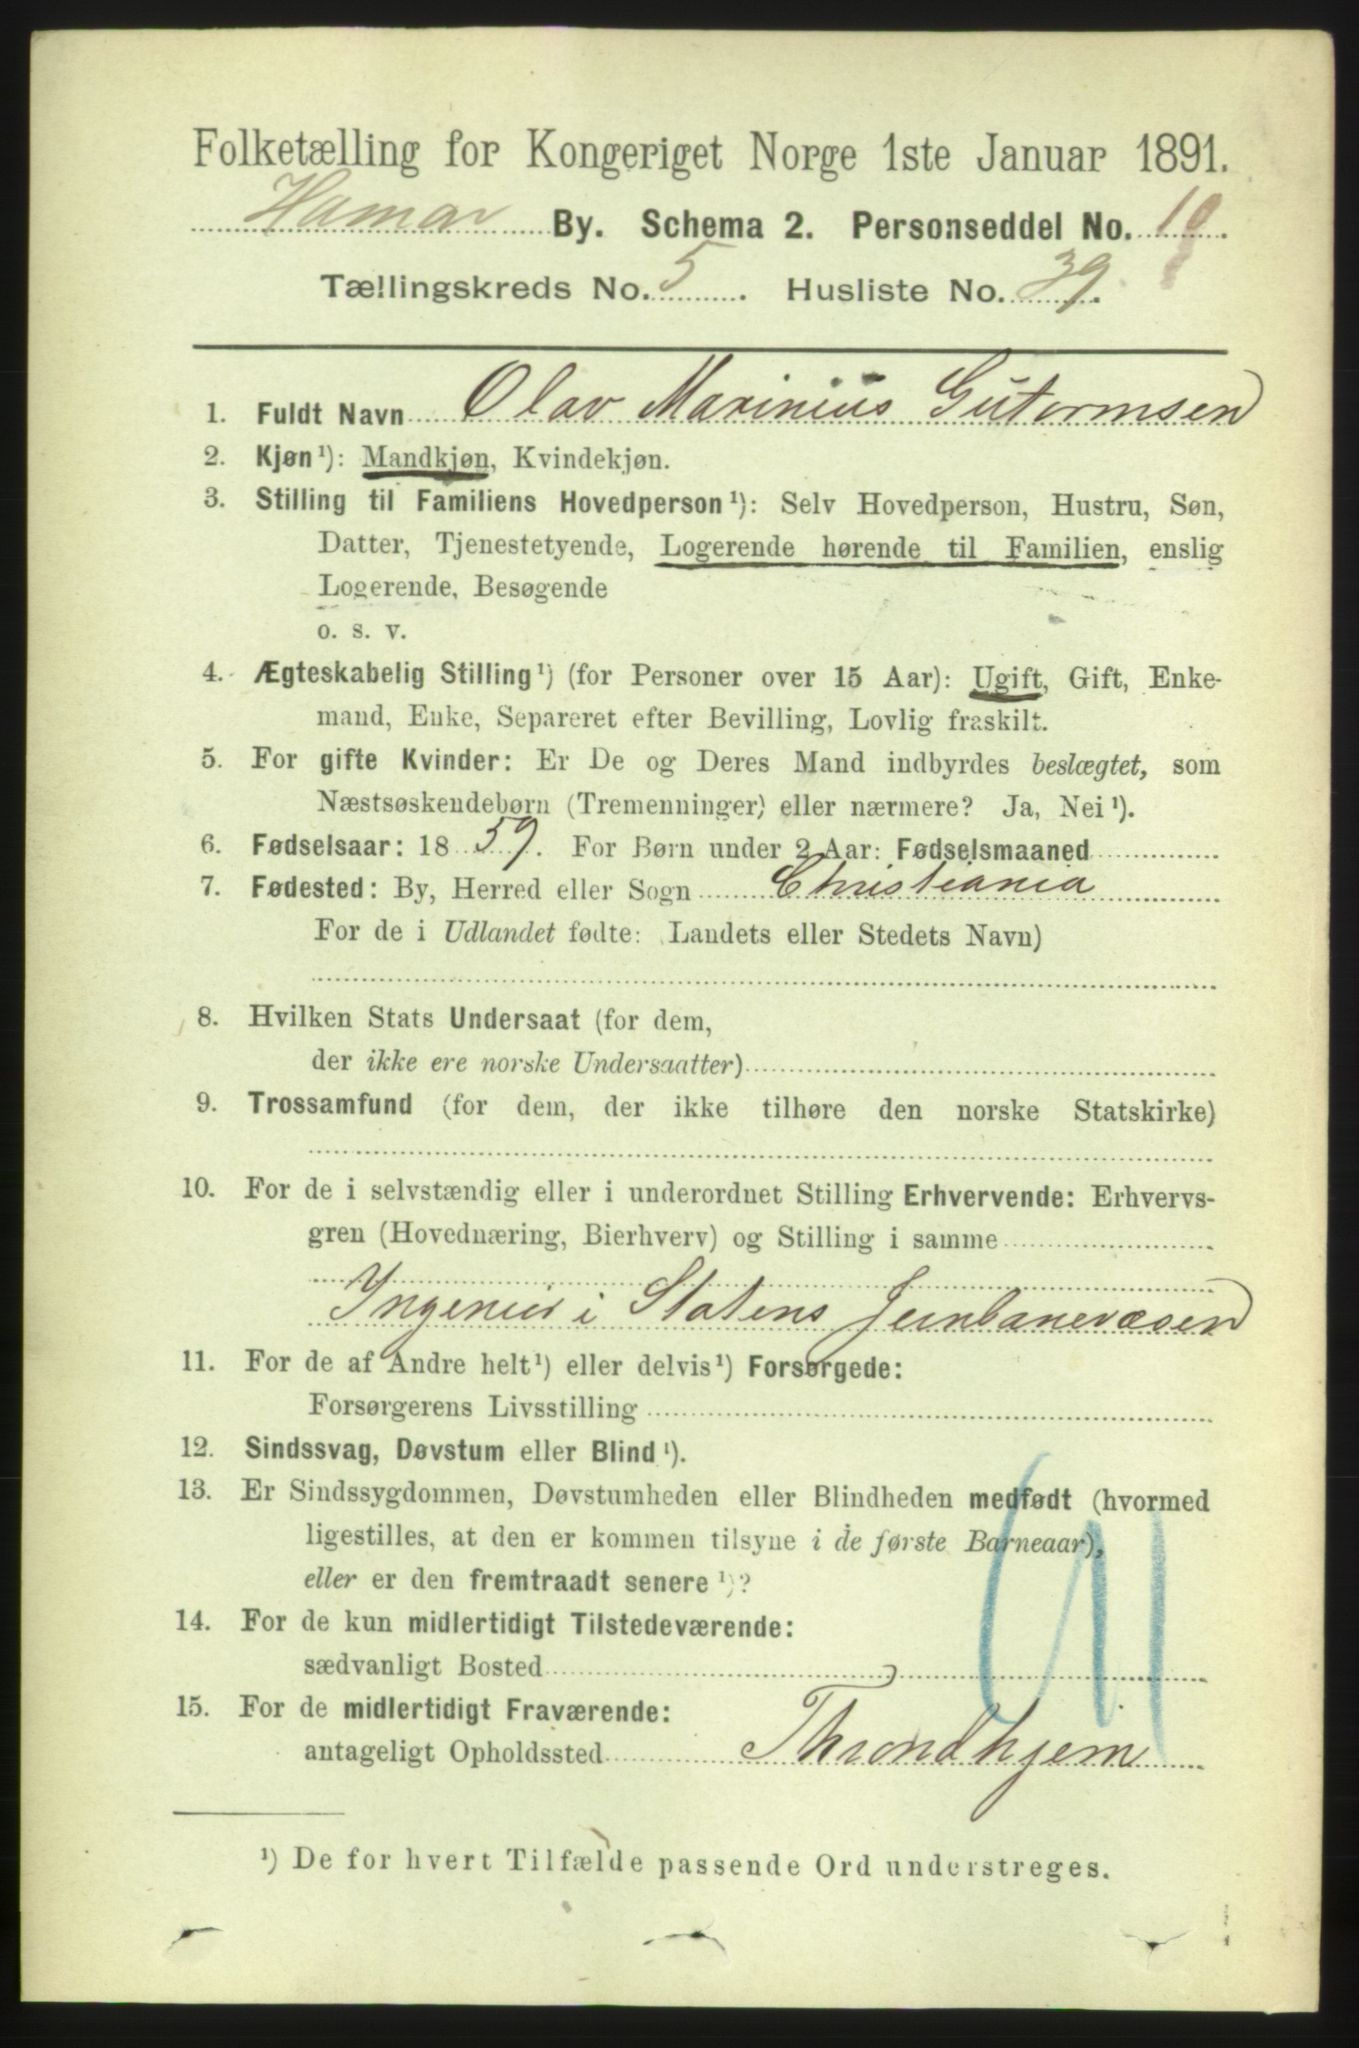 Folketælling for Kongeriget Norge 1ste Januar 1891.
Hamar By. Schema 2. Personseddel No. 10.
Tællingskreds No. 5. Husliste No. 39.
1. Fuldt Navn Olav Marinius Gutormsen
2. Kjøn¹): Mandkjøn, Kvindekjøn.
3. Stilling til Familiens Hovedperson¹): Selv Hovedperson, Hustru, Søn,
Datter, Tjenestetyende, Logerende hørende til Familien, enslig
Logerende, Besøgende
o. s. v.
4. Ægteskabelig Stilling¹) (for Personer over 15 Aar): Ugift, Gift, Enke-
mand, Enke, Separeret efter Bevilling, Lovlig fraskilt.
5. For gifte Kvinder: Er De og Deres Mand indbyrdes beslægtet, som
Næstsøskendebørn (Tremenninger) eller nærmere? Ja, Nei¹).
6. Fødselsaar: 1859. For Børn under 2 Aar: Fødselsmaaned
7. Fødested: By, Herred eller Sogn Christiania
For de i Udlandet fødte: Landets eller Stedets Navn)
8. Hvilken Stats Undersaat (for dem,
der ikke ere norske Undersaatter)
9. Trossamfund (for dem, der ikke tilhøre den norske Statskirke)
10. For de i selvstændig eller i underordnet Stilling Erhvervende: Erhvervs-
gren (Hovednæring, Bierhverv) og Stilling i samme
Ingeniør i Statens Jernbanevæsen
11. For de af Andre helt¹) eller delvis¹) Forsørgede:
Forsørgerens Livsstilling
12. Sindssvag, Døvstum eller Blind¹).
13. Er Sindssygdommen, Døvstumheden eller Blindheden medfødt (hvormed
ligestilles, at den er kommen tilsyne i de første Barneaar),
eller er den fremtraadt senere¹)?
14. For de kun midlertidigt Tilstedeværende:
sædvanligt Bosted
15. For de midlertidigt Fraværende:
antageligt Opholdssted Throndhjem
¹) De for hvert Tilfælde passende Ord understreges.